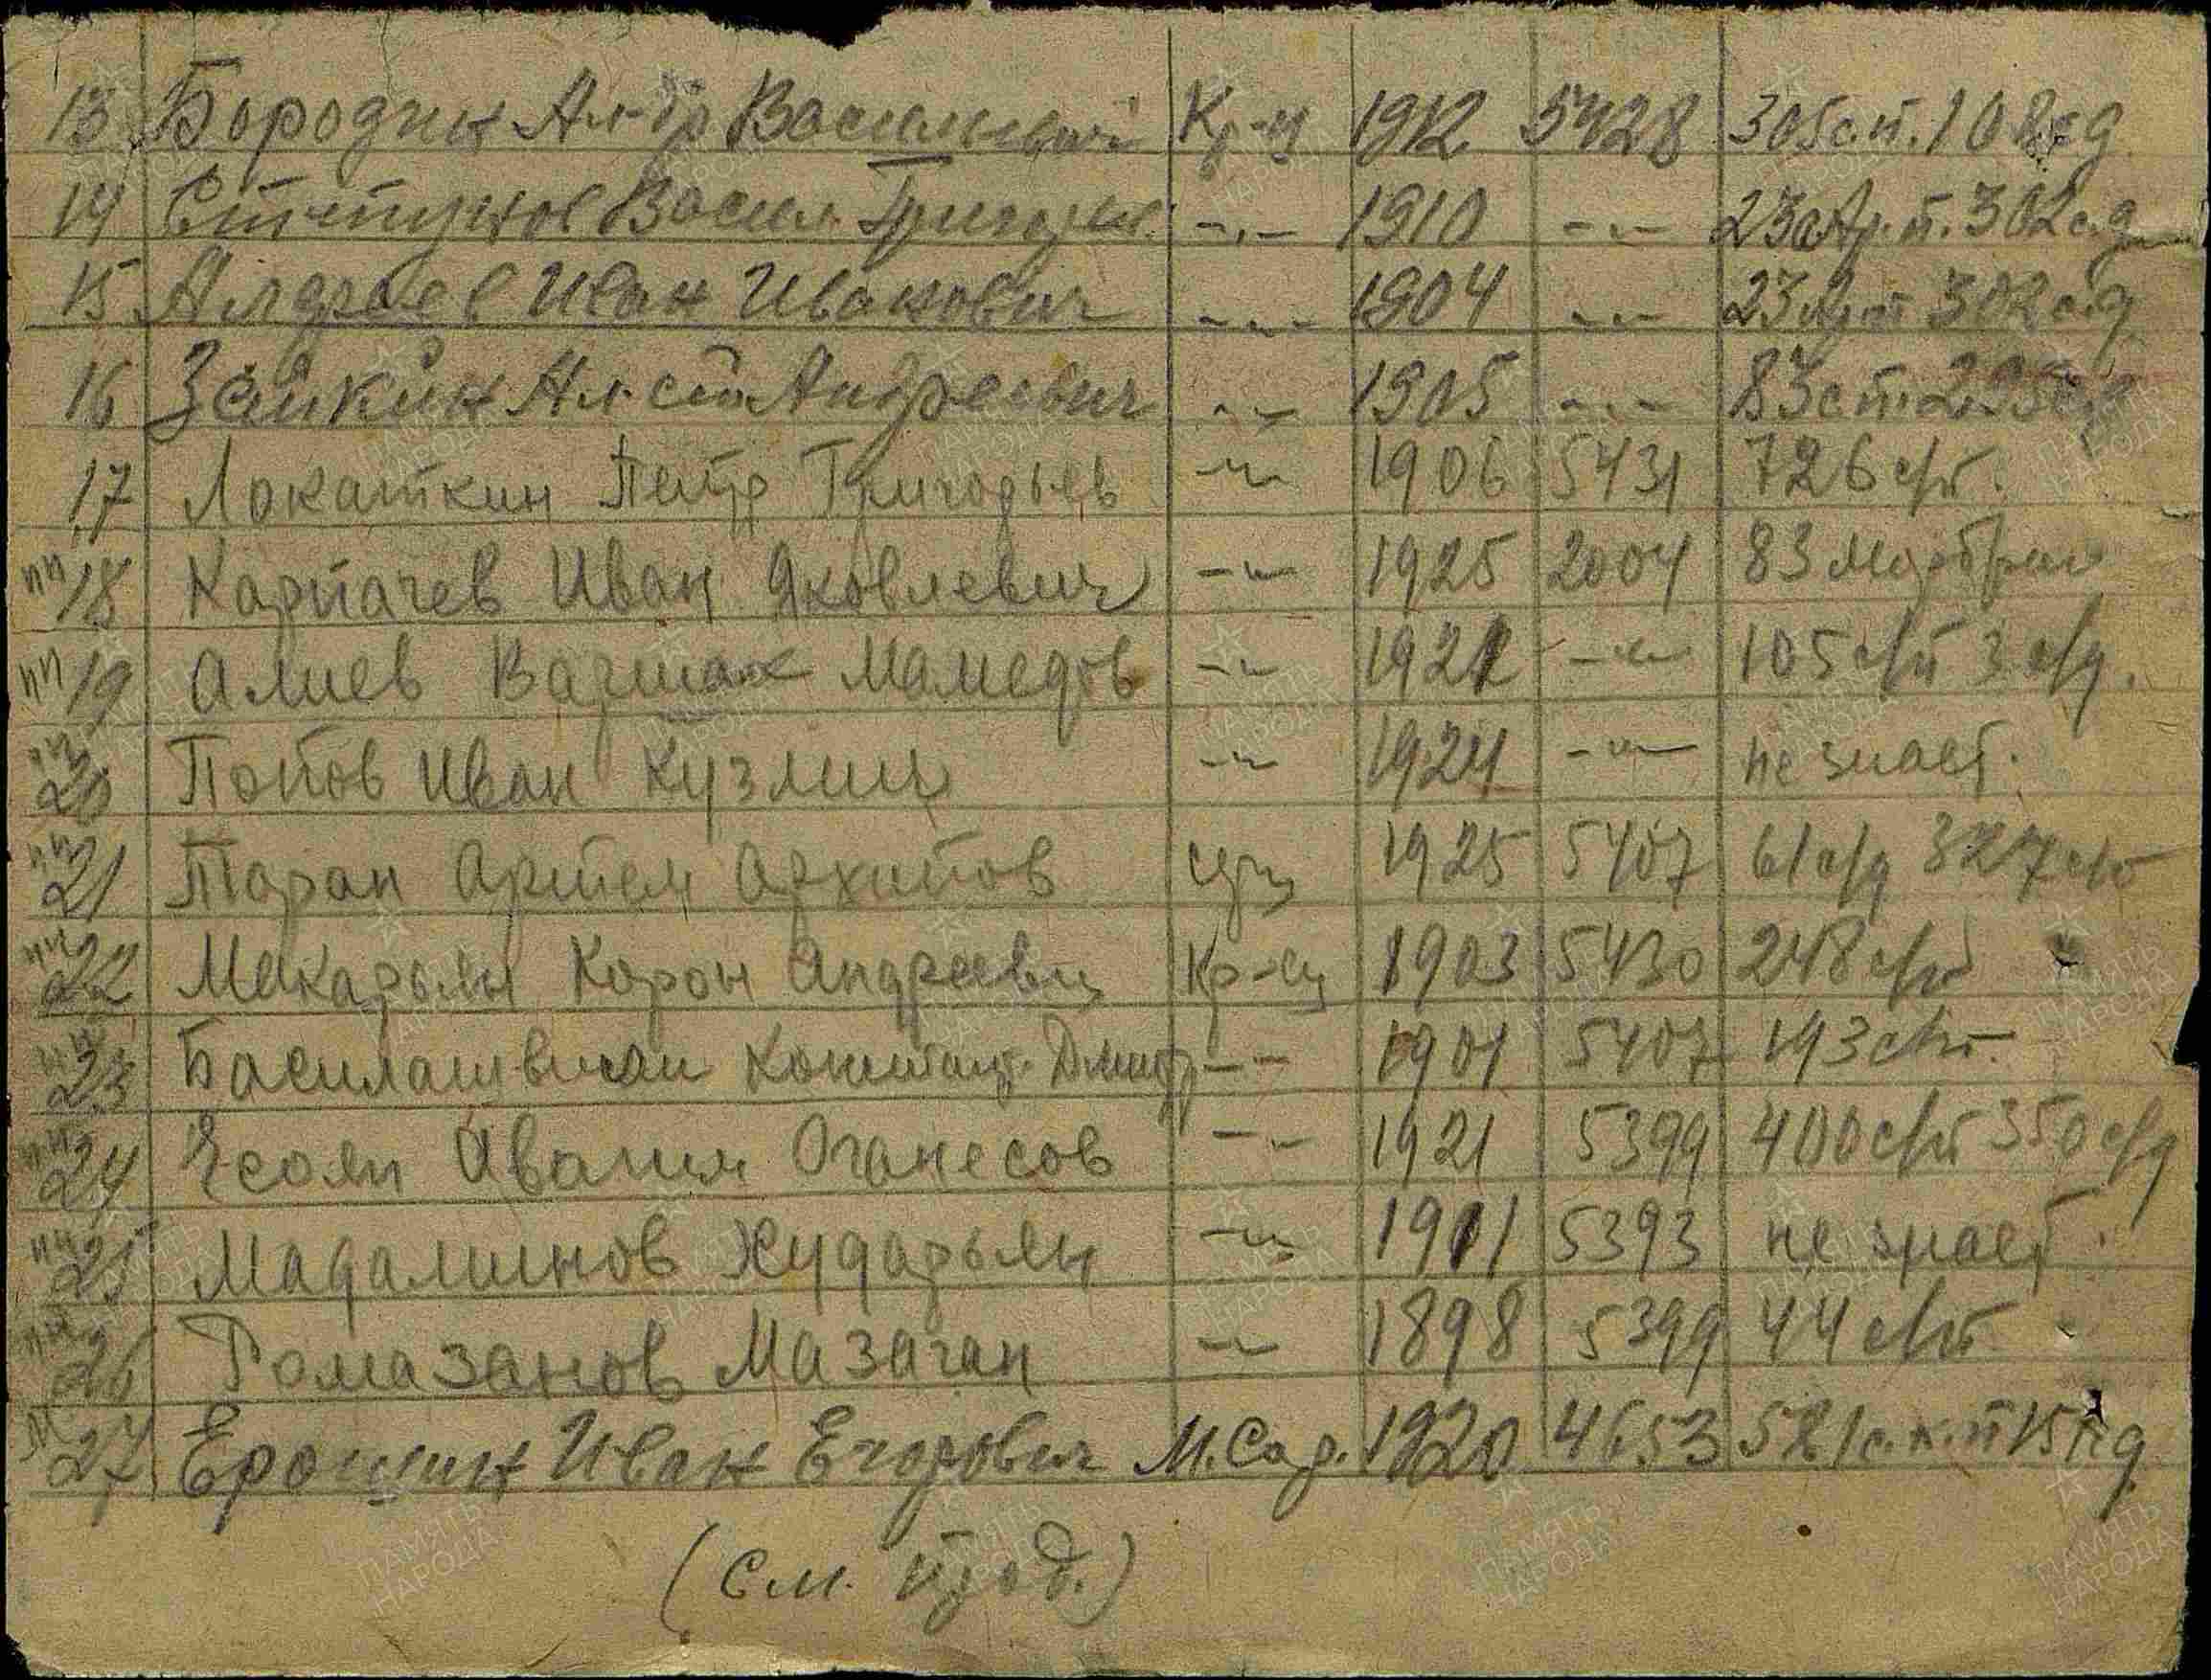 13 Бородин Ал-др Васильевич Кр-ц 1912 5428 305 с.п. 108 с.д
14 Василь Григорьев -"- 1910 -"- 23 с.Ар.п. 302 с.д
15 Иван Иванович -"- 1904 -"- 23 302 с.д
16 Зайкин Ал-ей Андреевич -"- 1905 -"- 83 сп 295 сд
17 Локаткин Петр Григорьев -"- 1906 5431 726 с/п.
пп 18 Карпачев Иван Яковлевич -"- 1925 2004 83 Морбриг
пп 19 Алиев Вагшах Мамедов -"- 1921 -"- 105 с/п 3 с/д.
пп 20 Попов Иван Кузмич -"- 1924 -"- не знает.
пп 21 Таран Артем Архипов 1925 5407 61 с/д 327 с/п
пп 22 Макарьян Карон Андреевич Кр-ец 1903 5430 248 с/п
пп 23 Басилашвили Констант. Дмитр -"- 1901 5407 193 с/п.
пп 24 Есоян Авагим Оганесов -"- 1921 5399 400 с/п 350 с/д
пп 25 Мадаминов Хударьян -"- 1911 5393 не знает.
пп 26 Рамазанов Мазаган -"- 1898 5399 44 с/п.
м 27 Ерошин Иван Егорович М.Сар. 1920 4653 581 с.п.п 15 с.д
(см. прод.)